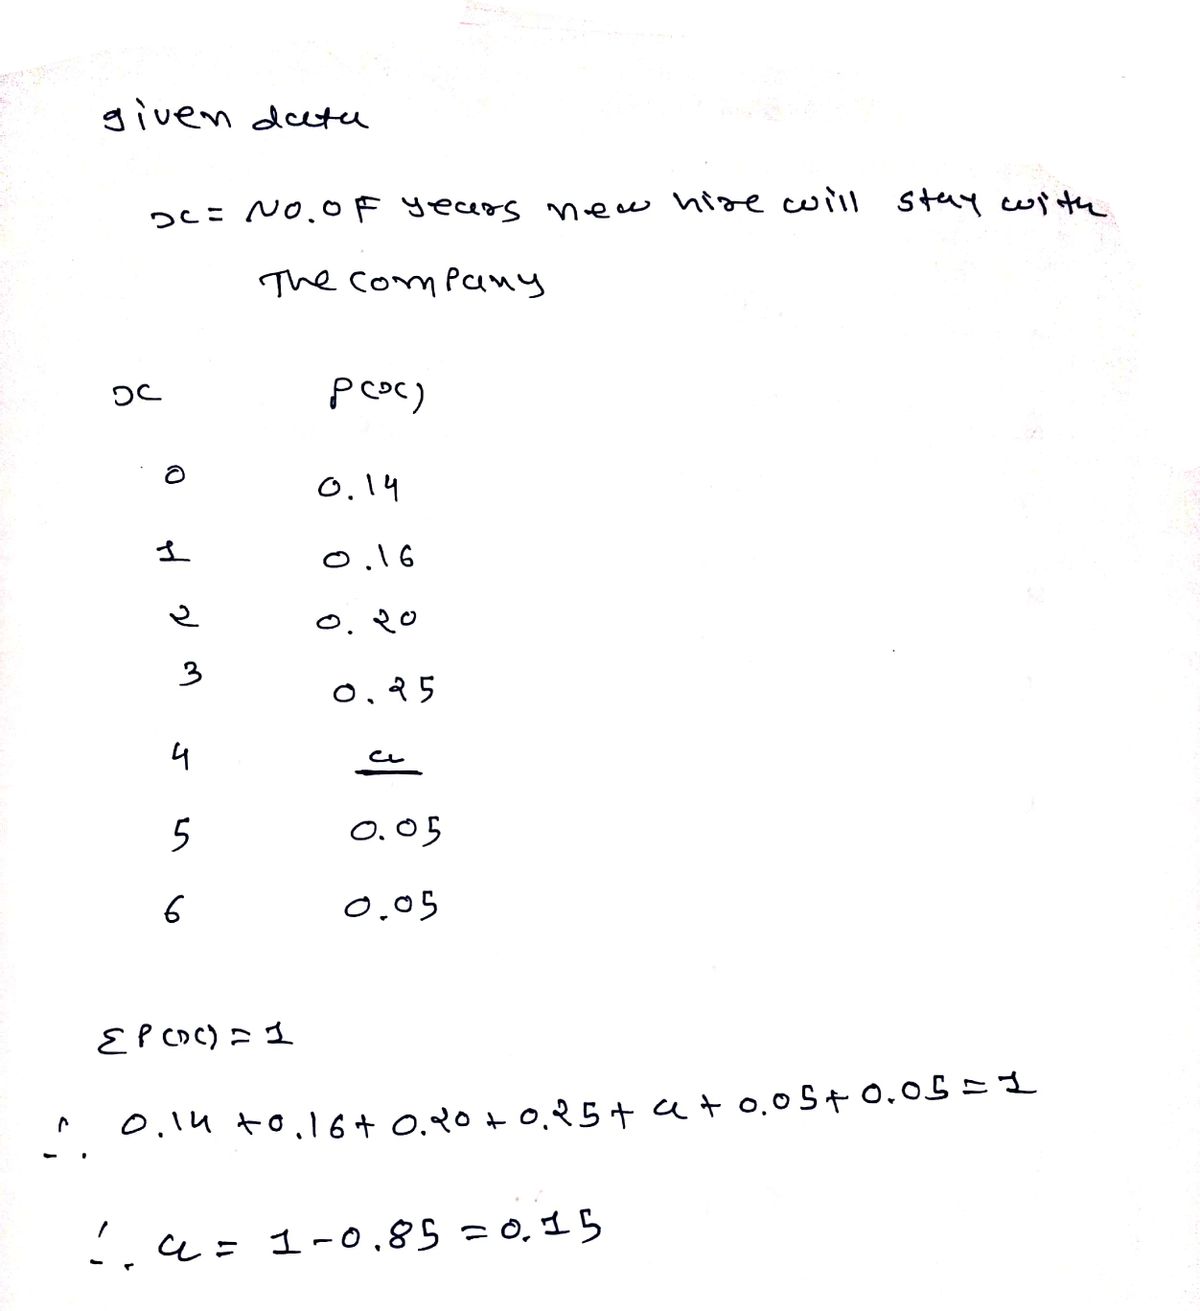 given data
x = No. of years new hire will stay with
The company
x P(x)
0 0.14
1 0.16
2 0.20
3 0.25
4 a
5 0.05
6 0.05
Σ P(x) = 1
∴ 0.14 + 0.16 + 0.20 + 0.25 + a + 0.05 + 0.05 = 1
∴ a = 1 - 0.85 = 0.15